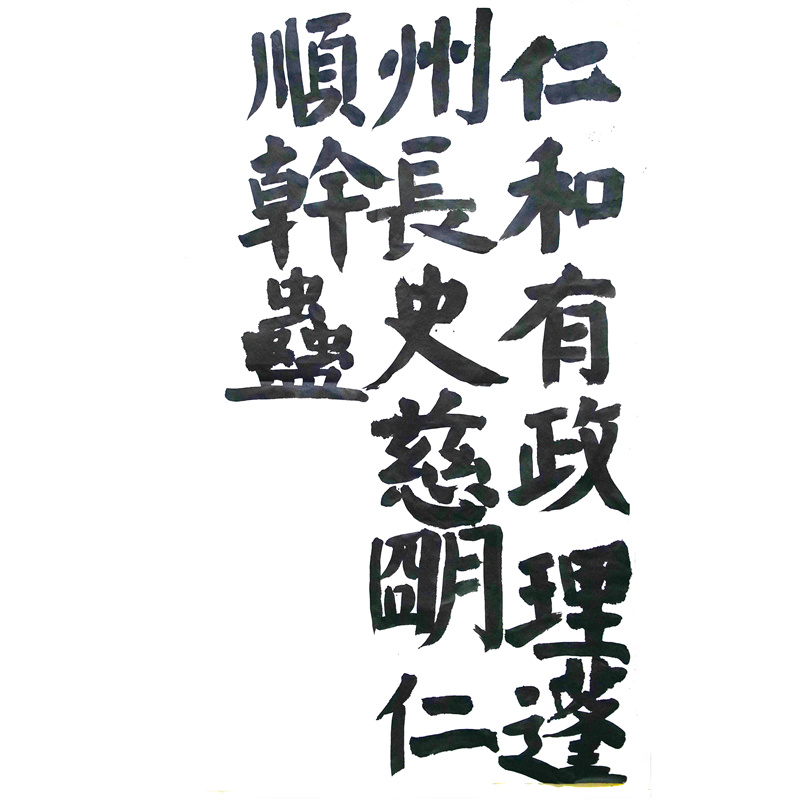 仁和有政理蓬
州長史慈朙仁
順幹蠱